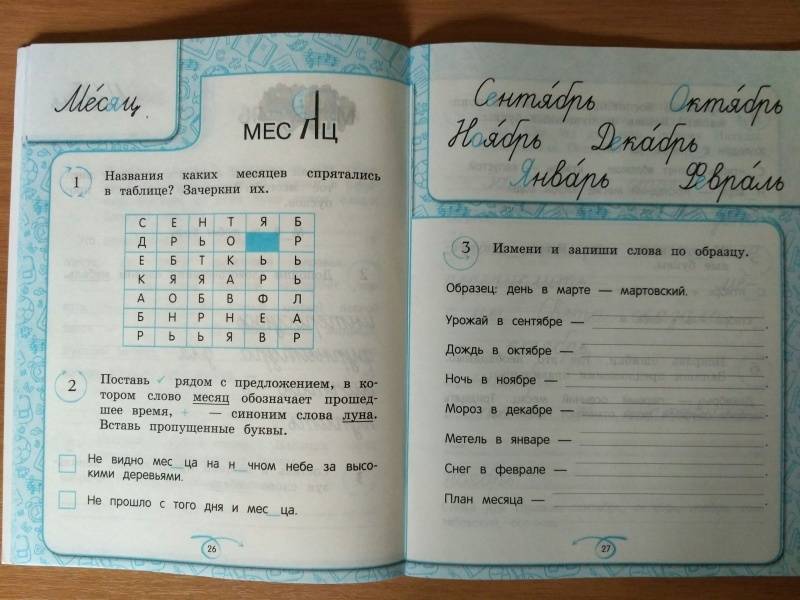 Ме́сяц.
МЕС Я Ц
1 Названия каких месяцев спрятались
в таблице? Зачеркни их.
С Е Н Т Я Б
Д Р Ь О Р
Е Б Т К Ь Ь
К Я Я А Р Ь
А О Б В Ф Л
Б Н Р Н Е А
Р Ь Ь Я В Р
2 Поставь ✓ рядом с предложением, в ко-
тором слово месяц обозначает прошед-
шее время, + — синоним слова луна.
Вставь пропущенные буквы.
Не видно мес_ца на н_чном небе за высо-
кими деревьями.
Не прошло с того дня и мес_ца.
26
Сентя́брь Октя́брь
Ноя́брь Дека́брь
Янва́рь Февра́ль
3 Измени и запиши слова по образцу.
Образец: день в марте — мартовский.
Урожай в сентябре — .
Дождь в октябре — .
Ночь в ноябре — .
Мороз в декабре — .
Метель в январе — .
Снег в феврале — .
План месяца — .
27